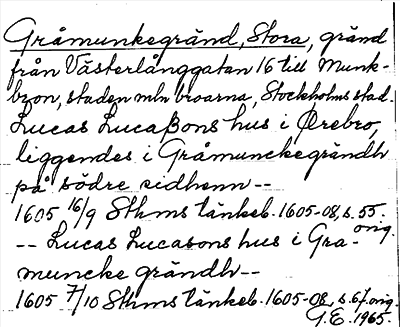 Gråmunkegränd, Stora, gränd
från Västerlånggatan 16 till Munk-
bron, staden mln broarna, Stockholms stad.
Lucas Lucaßons hus i Ørebro,
liggendes i Gråmunckegrändh
på södre sidhenn --
1605 16/9 Sthms tänkeb. 1605-08, s. 55.
orig.
-- Lucas Lucasons hus i Gra-
muncke grändh --
1605 7/10 Sthms tänkeb. 1605-08, s. 67. orig.
G.E. 1965.